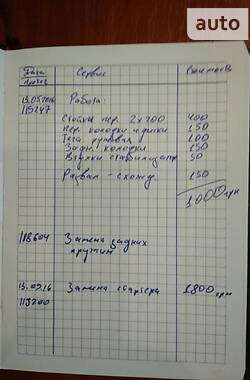 auto
Дата Сервис Стоимость
Пробег
13.05.2016 Работа:
115247
Стойки пер. 2x200 400
Пер. колодки и диски 150
Тяга рулевая 100
Задн. колодки 150
Втулки стабилизатор 50
Развал-схожд. 150
1000 грн
118604 Замена задних
пружин
13.09.16 Замена стартера 1800 грн
119200